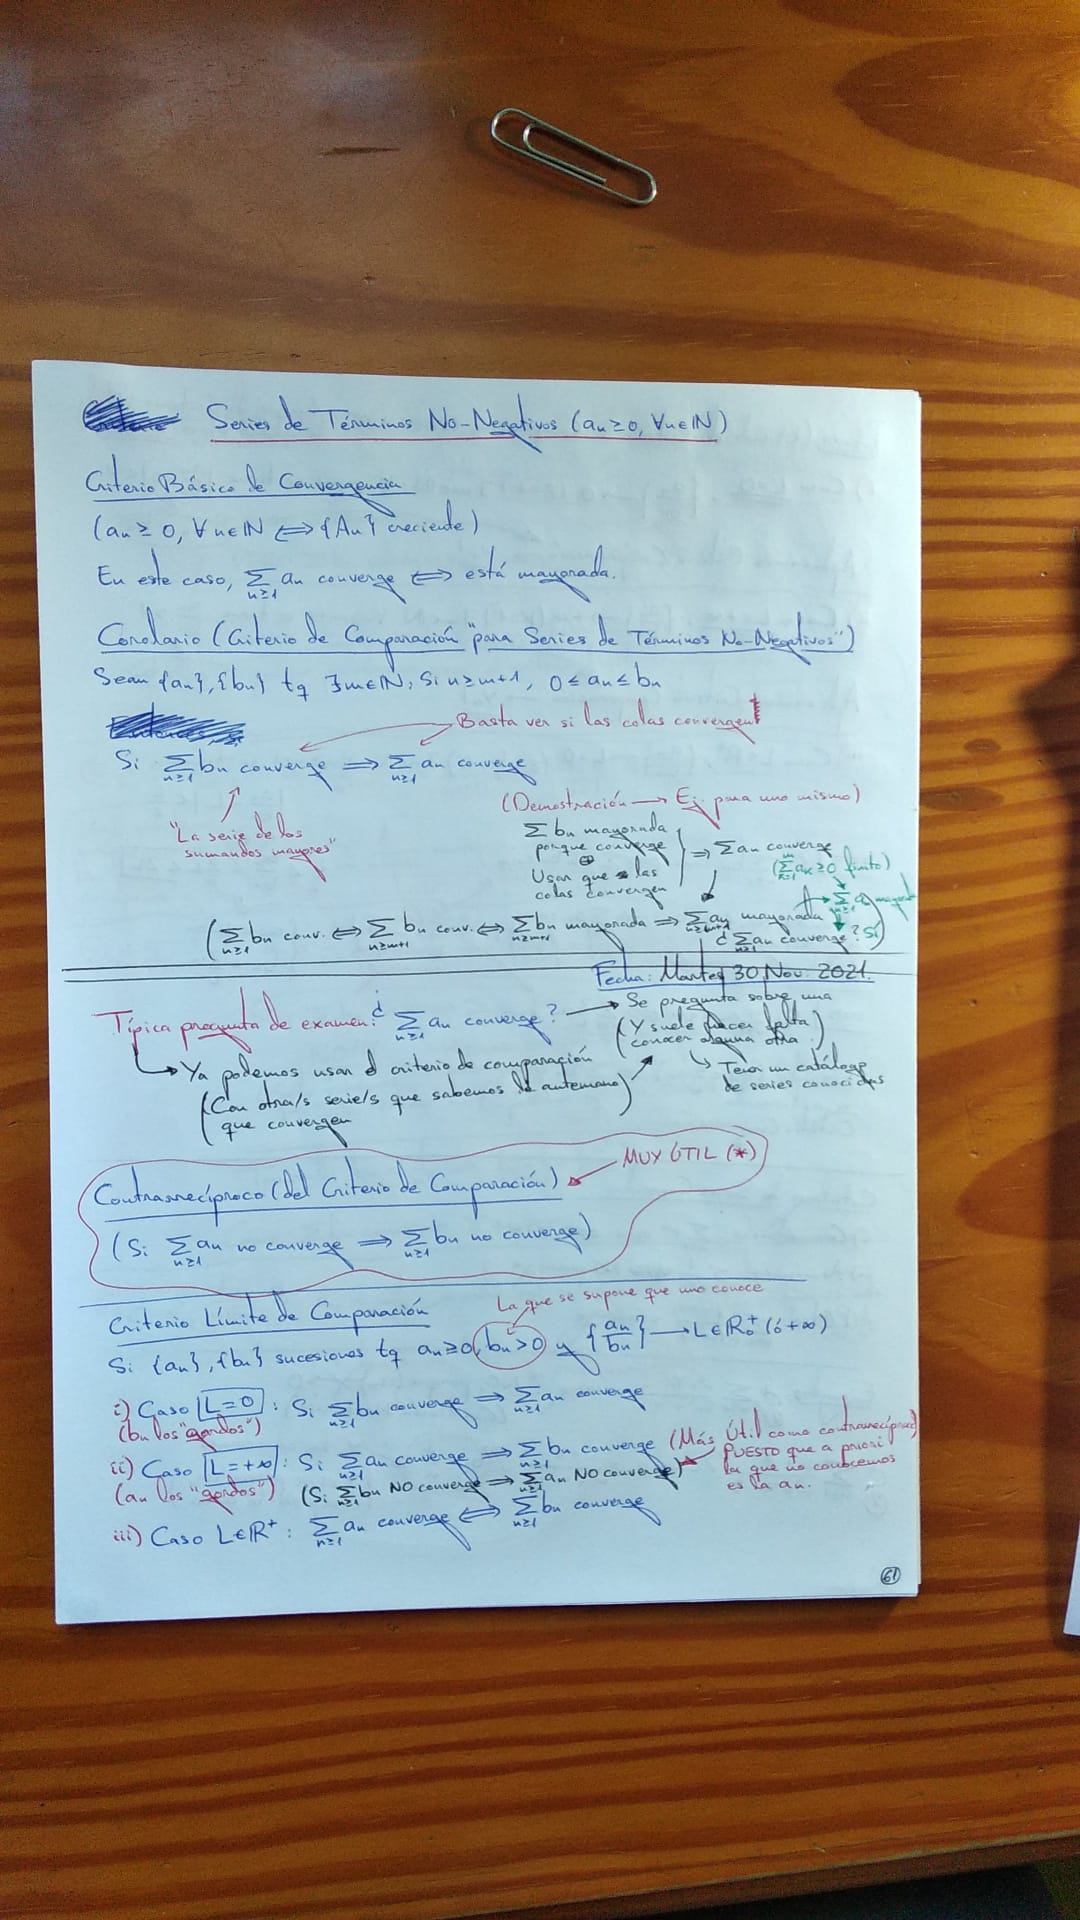 Series de Términos No-Negativos (an ≥ 0, ∀n∈ℕ)
Criterio Básico de Convergencia
(an ≥ 0, ∀n∈ℕ ⟺ {An} creciente)
En este caso, Σ_{n≥1} an converge ⟺ está mayorada.
Corolario (Criterio de Comparación "para Series de Términos No-Negativos")
Sean {an}, {bn} tq ∃m∈ℕ; Si n≥m+1, 0 ≤ an ≤ bn
Basta ver si las colas convergen
Si Σ_{n≥1} bn converge ⟹ Σ_{n≥1} an converge
"La serie de los
sumandos mayores"
(Demostración → Ej. para uno mismo)
Σ bn mayorada
porque converge
⊕
Usar que las
colas convergen
} ⟹ Σ an converge
(Σ_{k=1}^{m} ak ≥ 0 finito)
(Σ_{n≥1} bn conv. ⟺ Σ_{n≥m+1} bn conv. ⟺ Σ_{n≥m+1} bn mayorada ⟹ Σ_{n≥m+1} an mayorada
¿Σ_{n≥1} an converge? Sí)
Fecha: Martes 30 Nov. 2021.
Típica pregunta de examen: ¿Σ_{n≥1} an converge? → Se pregunta sobre una
(Y suele hacer falta
conocer alguna otra.)
↳ Tener un catálogo
de series conocidas
↳ Ya podemos usar el criterio de comparación
(Con otra/s serie/s que sabemos de antemano)
que convergen
Contrarrecíproco (del Criterio de Comparación) ← MUY ÚTIL (*)
(Si Σ_{n≥1} an no converge ⟹ Σ_{n≥1} bn no converge)
Criterio Límite de Comparación
La que se supone que uno conoce
Si {an}, {bn} sucesiones tq an≥0, bn>0 y {an/bn} → L∈ℝ₀⁺ (ó +∞)
i) Caso L=0: Si Σ_{n≥1} bn converge ⟹ Σ_{n≥1} an converge
(bn los "gordos")
ii) Caso L=+∞: Si Σ_{n≥1} an converge ⟹ Σ_{n≥1} bn converge
(an los "gordos") (Si Σ_{n≥1} bn NO converge ⟹ Σ_{n≥1} an NO converge)
(Más Útil como contrarrecíproco)
PUESTO que a priori
la que no conocemos
es la an.
iii) Caso L∈ℝ⁺: Σ_{n≥1} an converge ⟺ Σ_{n≥1} bn converge
61